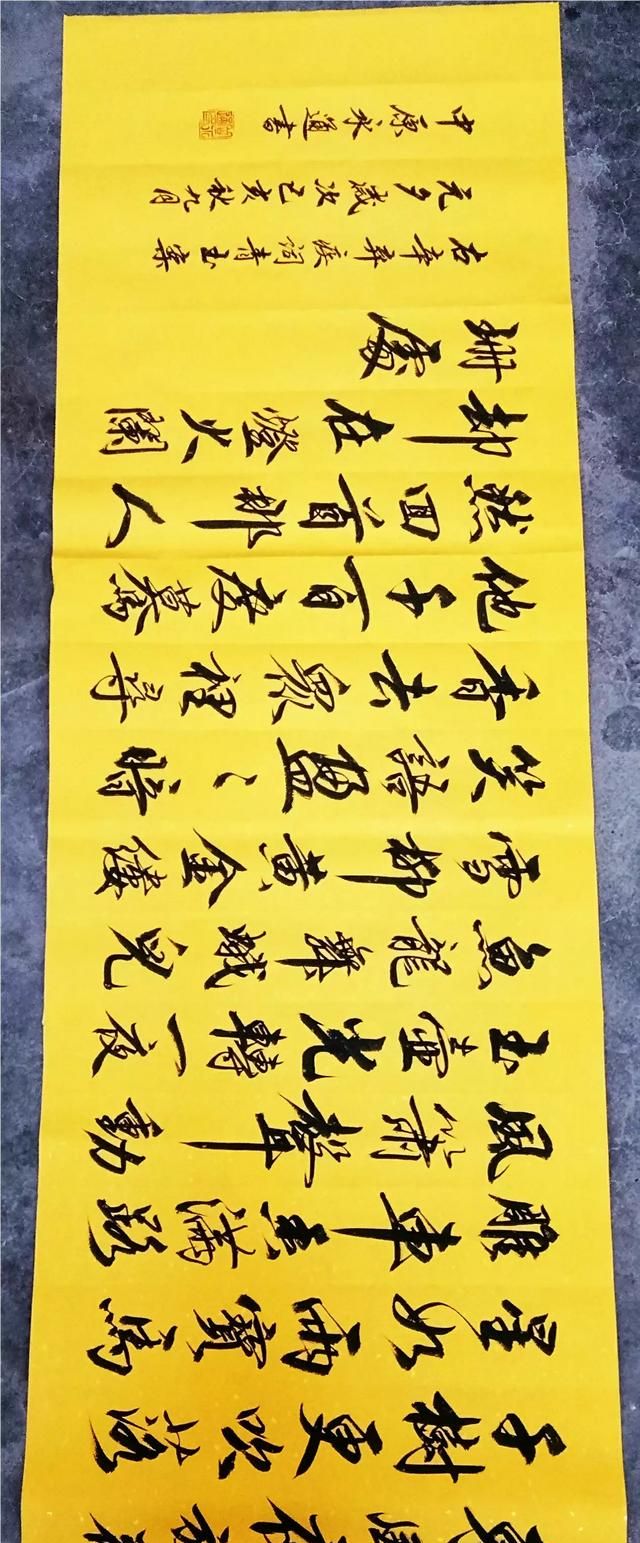 千樹更吹落
星如雨寶馬
雕車香滿路
鳳簫聲動
玉壺光轉一夜
魚龍舞蛾兒
雪柳黃金縷
笑語盈〻暗
香去眾裡尋
他千百度驀
然回首那人
却在燈火闌
珊處
右辛棄疾詞青玉案
元夕歲次己亥秋九月
中原永通書